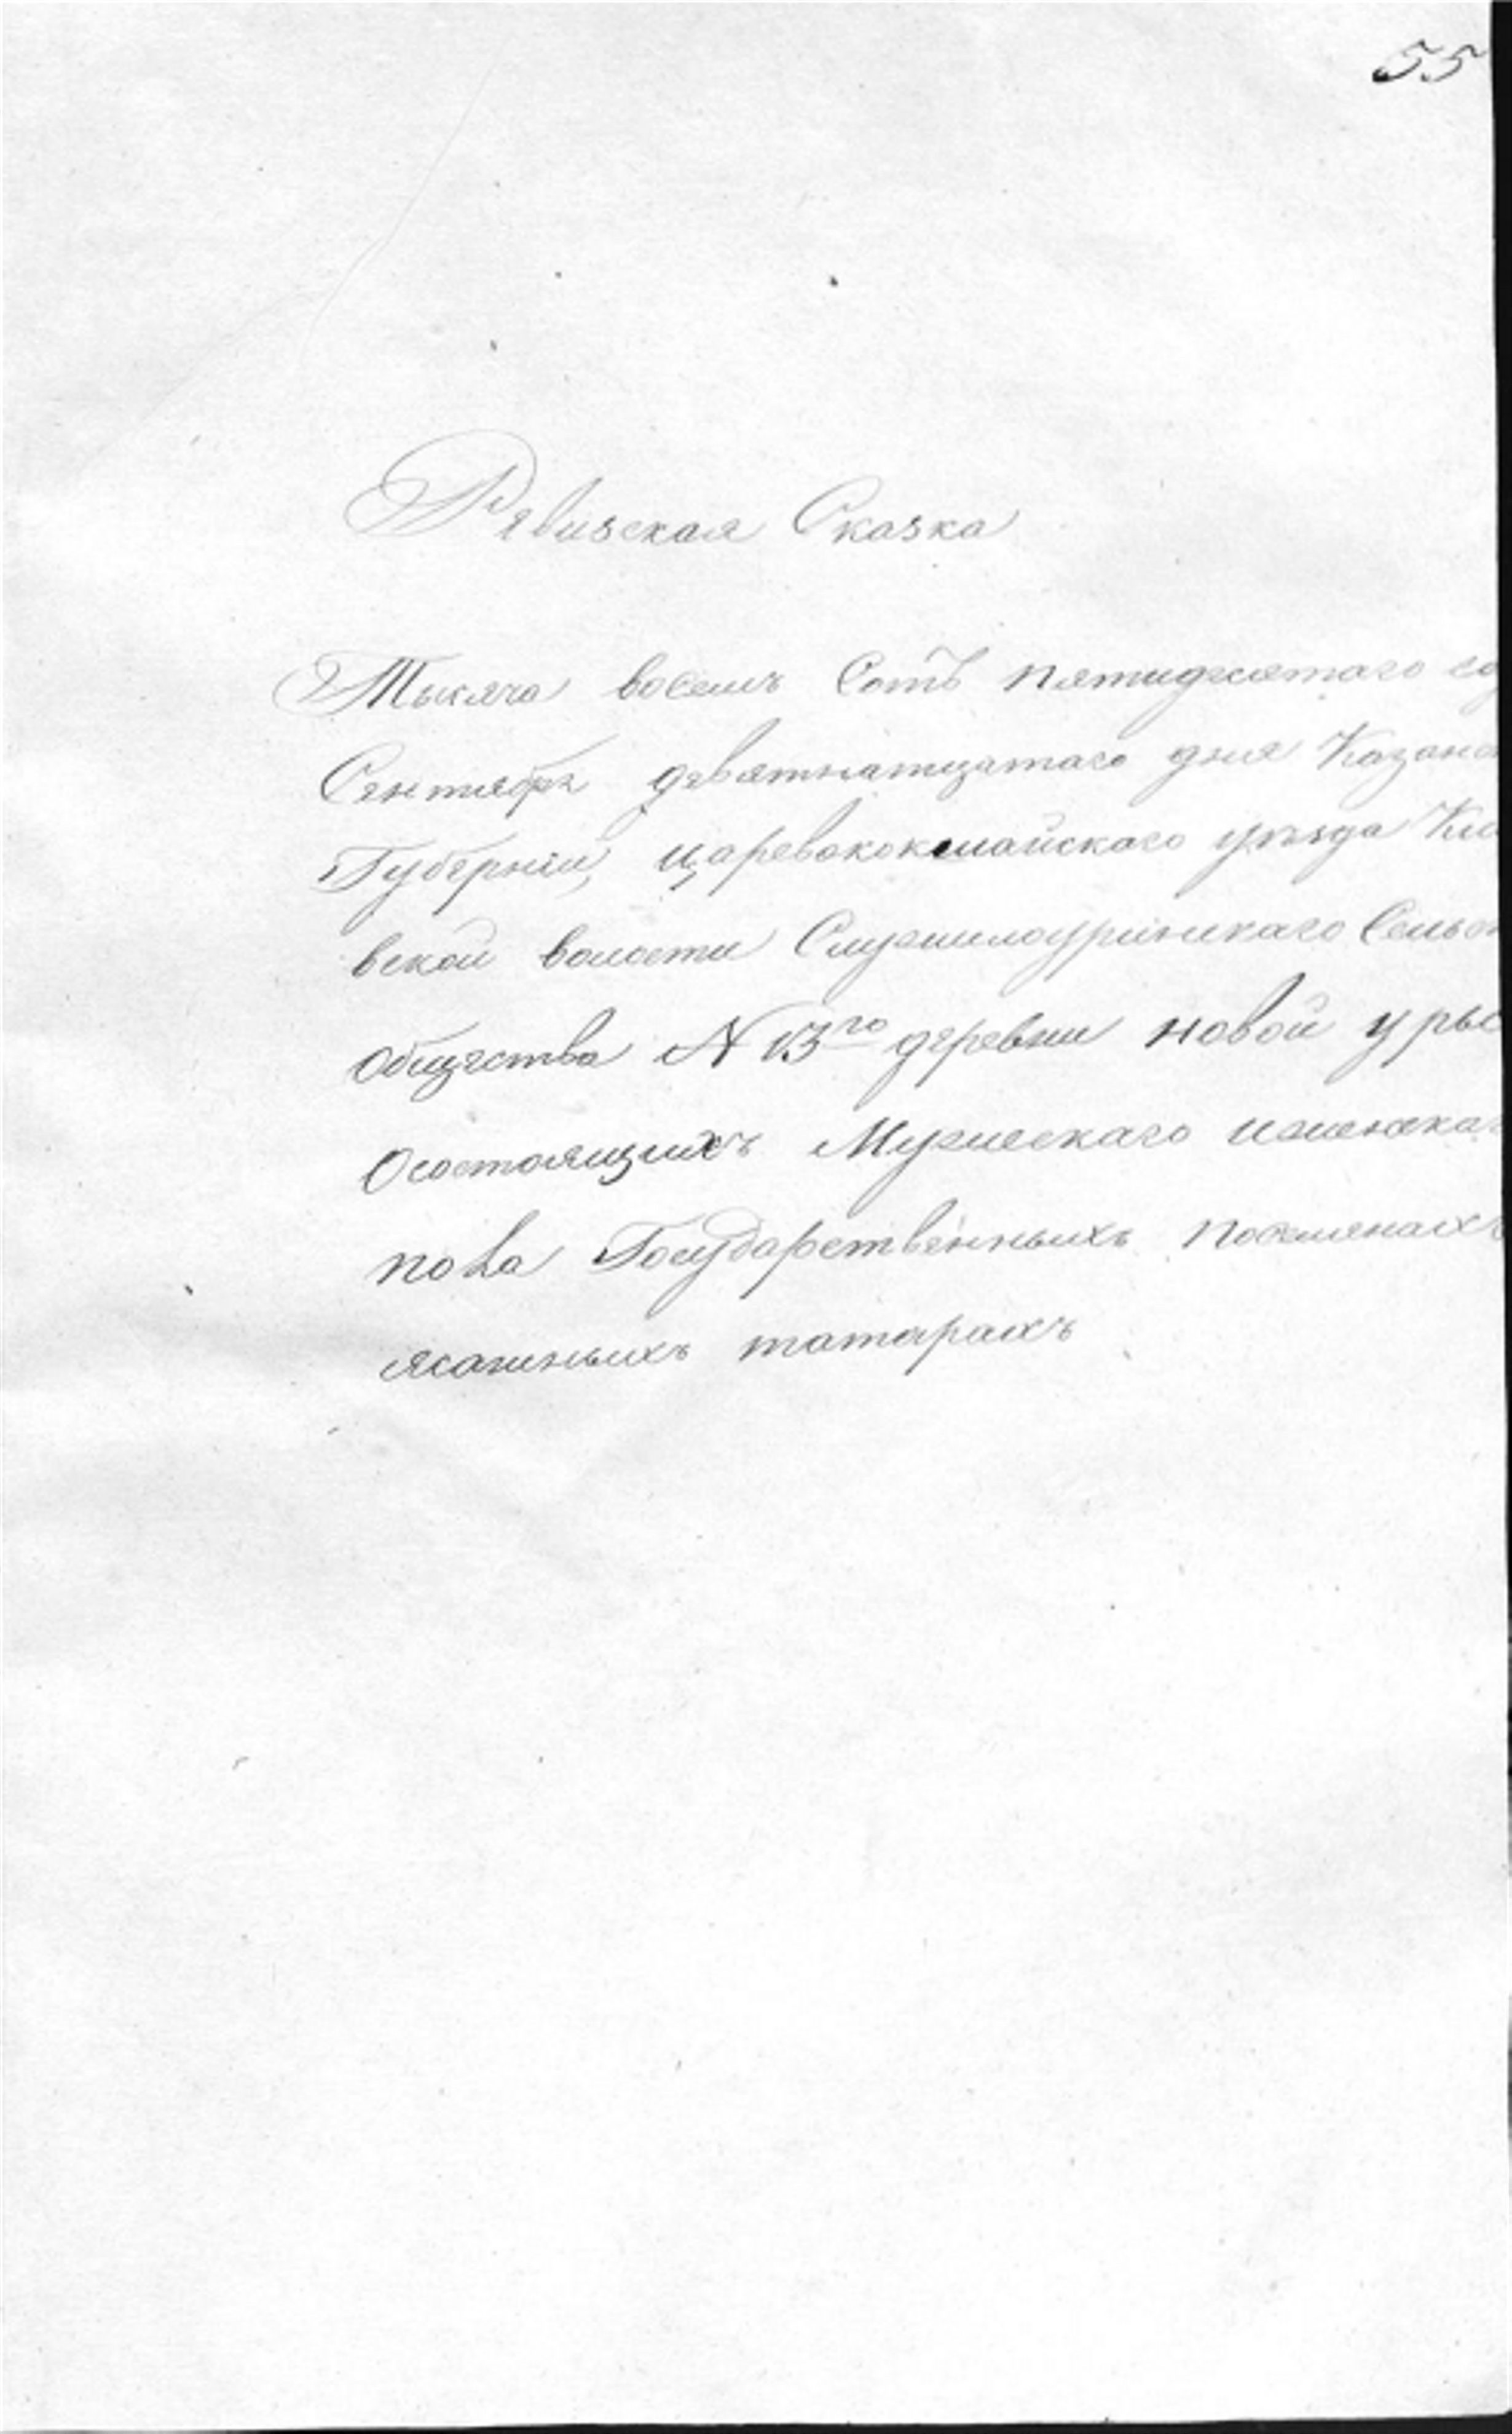 55
Рявизская Сказка
Тысяча восемъ Сотъ пятидесятаго
Сентября девятнатцатаго дня Казанс
Губернiи, царевококшайскаго уѣзда
вской волости Служилоуринскаго Сельс
общества N 13го деревни новой уры
Осостоящихъ Мужескаго иженска
пола Государственныхъ поселянахъ
ясашныхъ татарахъ